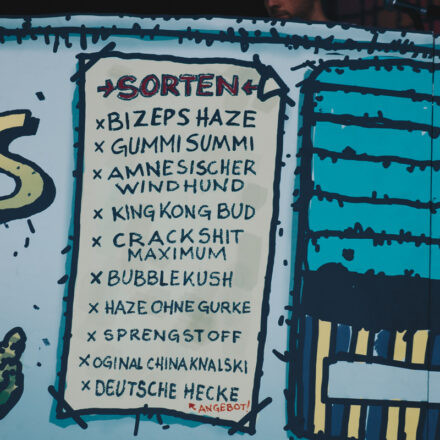 →SORTEN←
xBIZEPS HAZE
x GUMMI SUMMI
x AMNESISCHER
WINDHUND
x KING KONG BUD
x CRACKSHIT
MAXIMUM
x BUBBLEKUSH
x HAZE OHNE GURKE
x SPRENGSTOFF
xOGINAL CHINAKNALSKI
x DEUTSCHE HECKE
↖ANGEBOT!
S